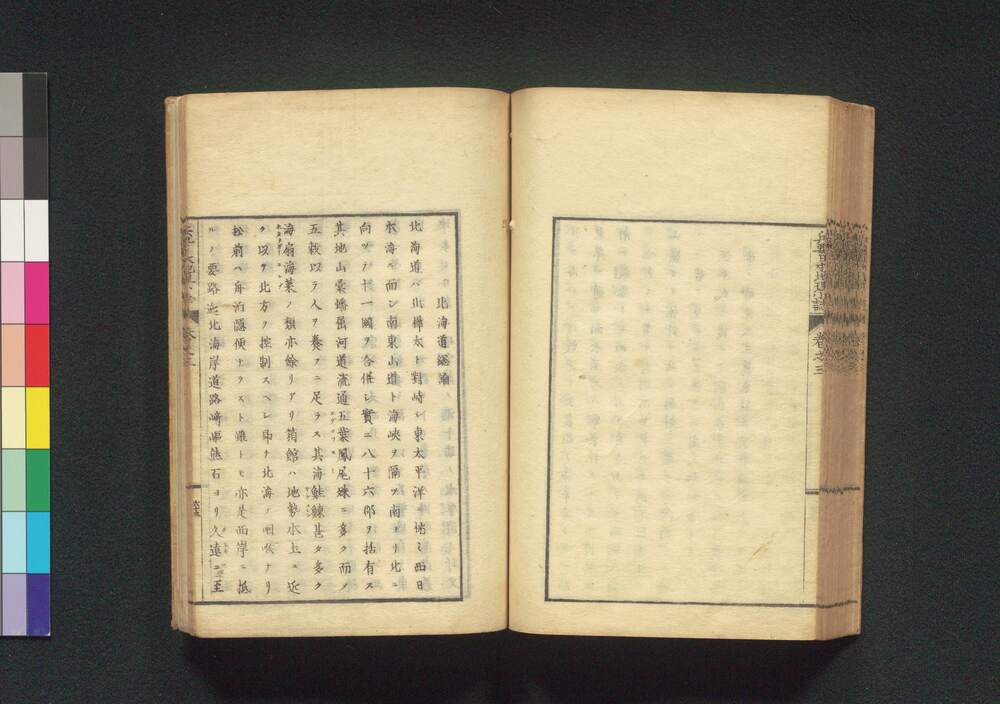 兵要日本地理小誌
巻之三
北海道総論
北海道ハ北樺太ト対峙シ東太平洋ニ枕ミ西日
本海ニ面シ南東山道ト海峡ヲ隔ツ南ヨリ北ニ
向ツテ十一國ヲ合併シ實ニ八十六郡ヲ括有ス
其地山嶽蟠崫河道流通五葉鳳尾殊ニ多ク而ノ
五穀以テ人ヲ養フニ足ラス其海鮭鰊甚タ多ク
海扇海菜ノ類亦餘リアリ箱館ハ地勢水上ニ近
ク以テ北方ヲ控制スヘシ即チ北海ノ咽喉ナリ
松前ハ舟泊隠便ナラスト雖トモ亦是西岸ニ抵
ルノ要路迚北海岸道路崎嶇熊石ヨリ久遠ニ至
巻之三
六十五